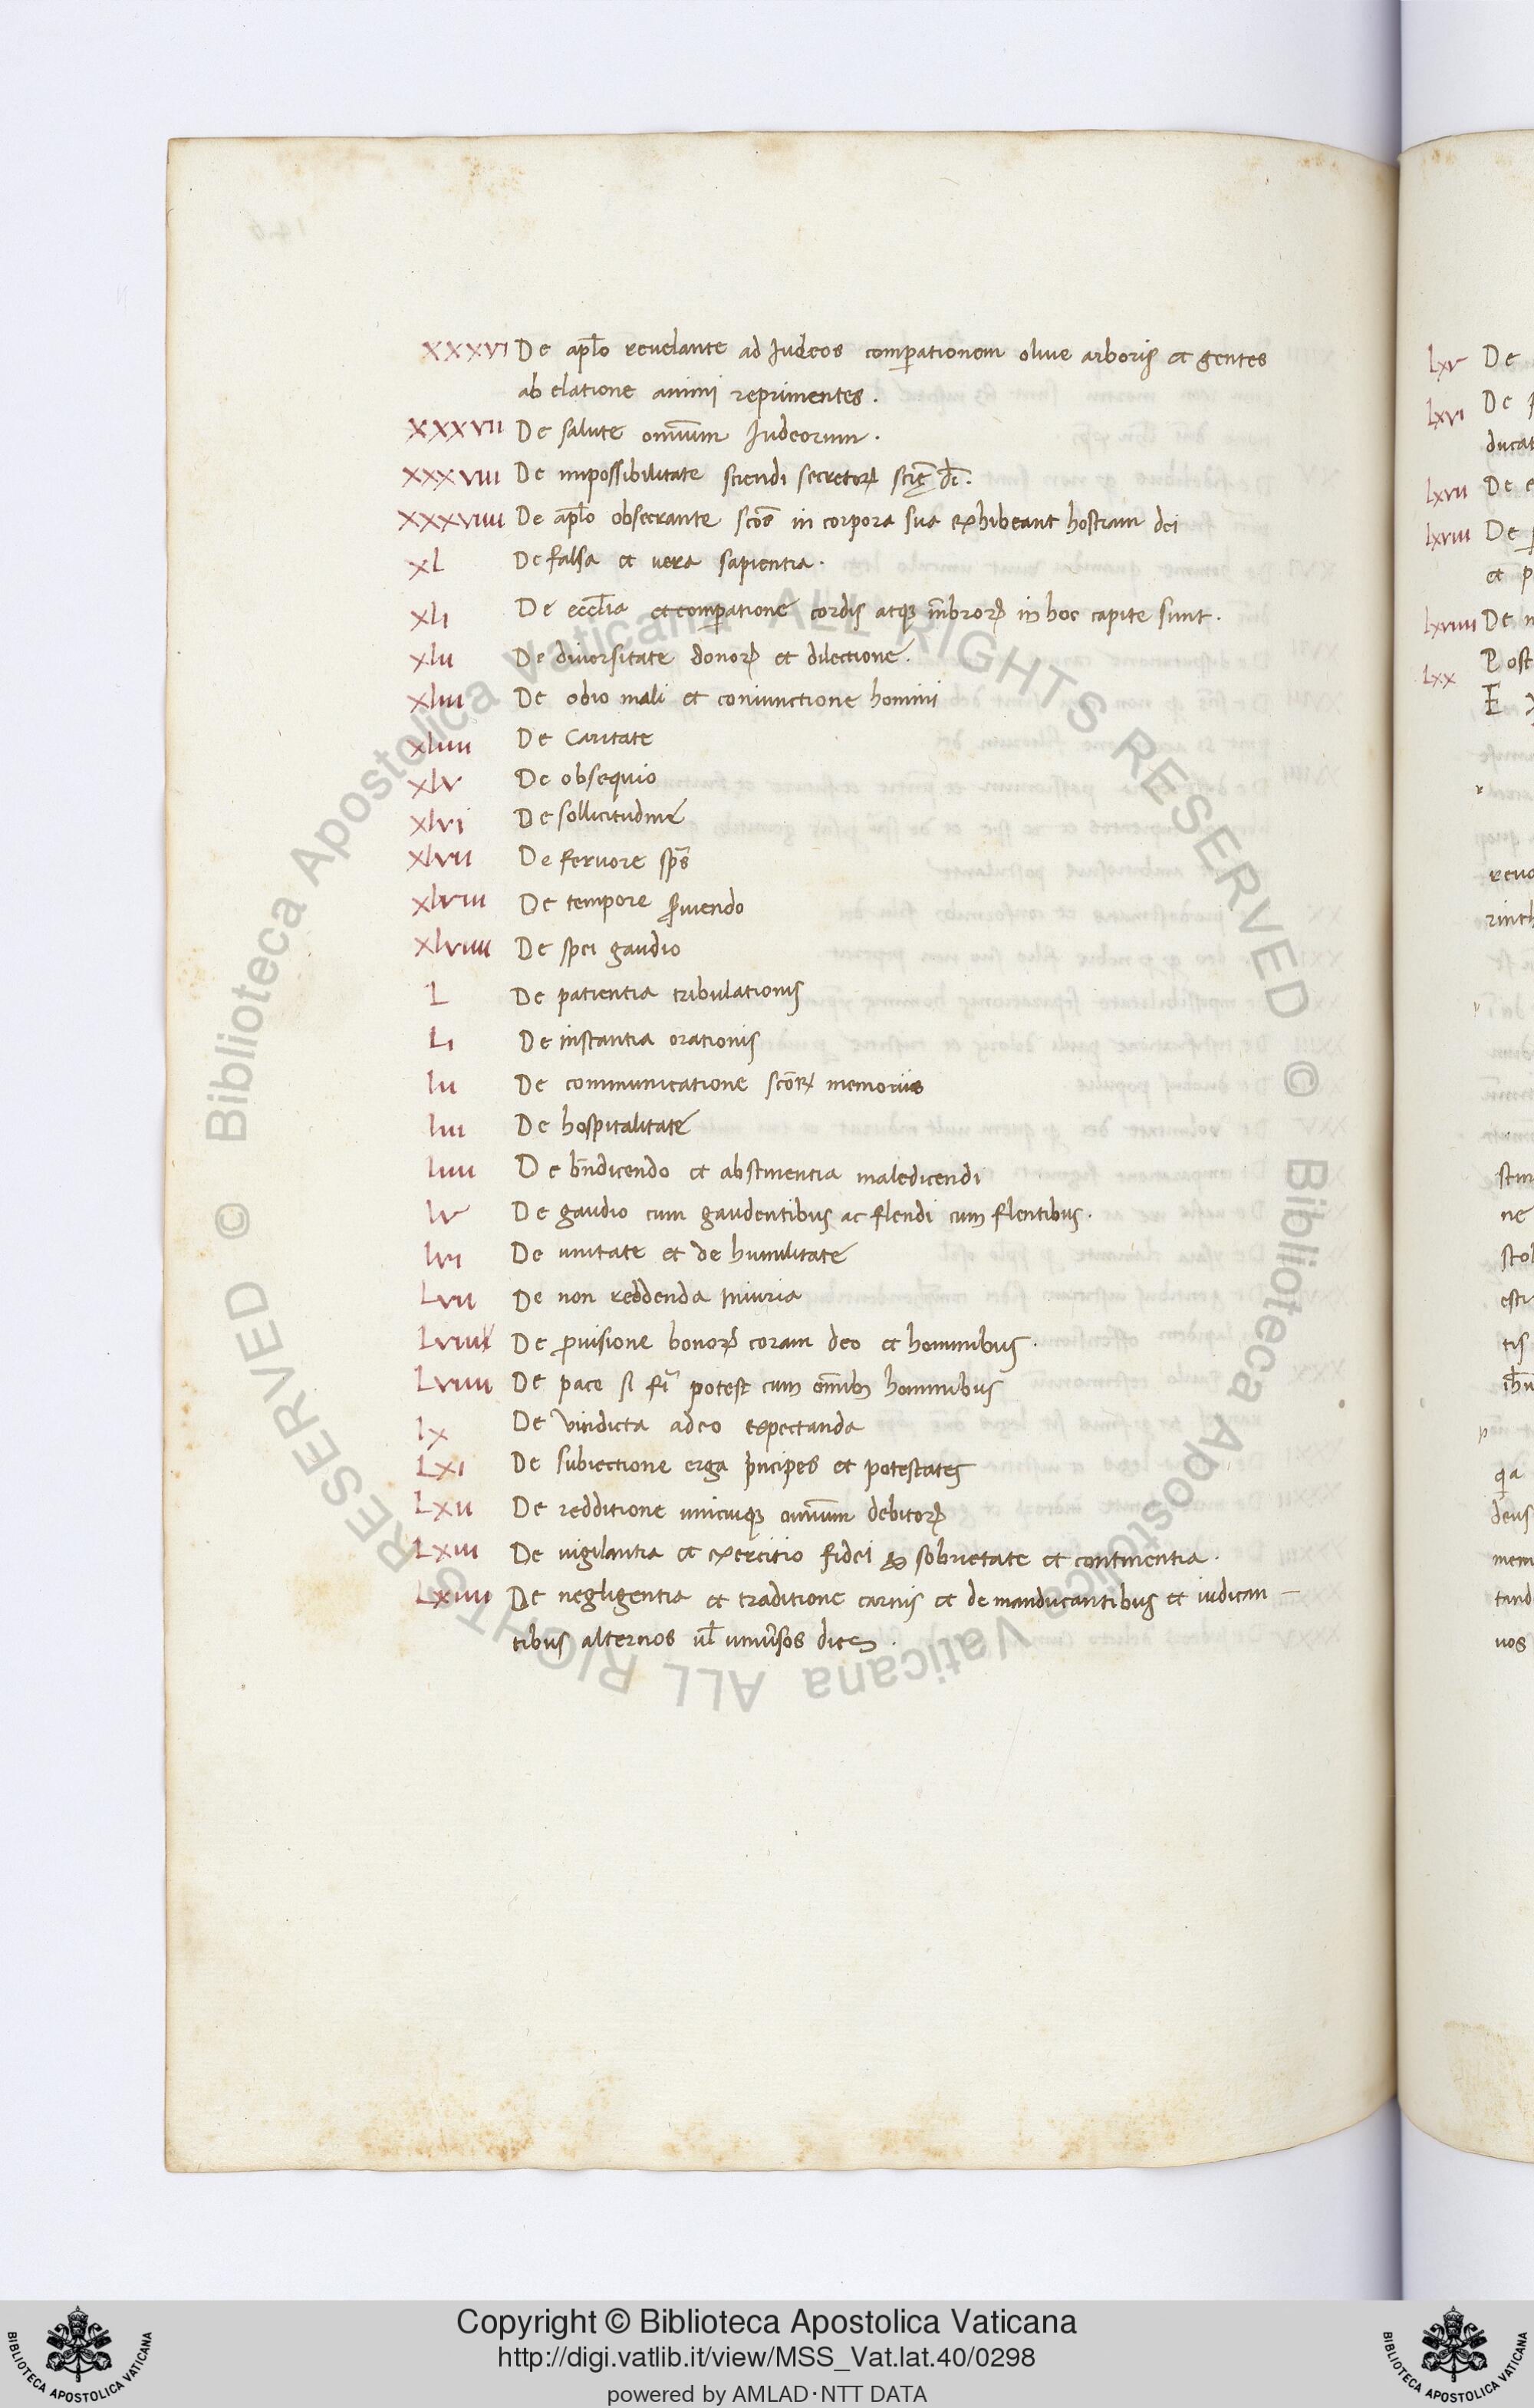 XXXVI De apl̄o reuelante ad Iudeos comꝑationem oliue arboris et gentes
ab elatione animi reprimentes.
XXXVII De salute omn̄ium Iudeorum.
XXXVIII De impossibilitate sciendi secretoꝝ sciȩ̄ dī.
XXXVIIII De apl̄o obsecrante scōs in corpora sua exhibeant hostiam dei
XL De falsa et uera sapientia.
XLI De eccl̄ia et comꝑatione cordis atqꝫ m̄broꝝ in hoc capite sunt.
XLII De diuersitate donoꝝ et dilectione.
XLIII De odio mali et coniunctione homini
XLIIII De Caritate
XLV De obsequio
XLVI De sollicitudine
XLVII De feruore sp̄s
XLVIII De tempore ẜuiendo
XLVIIII De spei gaudio
L De patientia tribulationis
LI De instantia orationis
lii De communicatione scōꝝ memoriis
liii De hospitalitate
liiii De bn̄dicendo et abstinentia maledicendi
lv De gaudio cum gaudentibus ac flendi cum flentibus.
lvi De unitate et de humilitate
Lvii De non reddenda iniuria
Lviii De ꝓuisione bonoꝝ coram deo et hominibus.
Lviiii De pace si fi͛ potest cum om̄ibꝫ hominibus
lx De vindicta adeo expectanda
Lxi De subiectione erga pͥncipes et potestates
Lxii De redditione unicuiqꝫ omn̄ium debitoꝝ
Lxiii De uigilantia et exercitio fidei & sobrietate et continentia.
Lxiiii De negligentia et traditione carnis et de manducantibus et iudican–
tibus alternos ul̄ uniuersos dies.
lxv De
lxvi De
ducat
lxvii De e
lxviii De
et p
lxviiii De
Lxx Post
E
reuo
rinth
stin
ne
stol
tis
deus
mem
tand
uos
© Biblioteca Apostolica Vaticana ALL RIGHTS RESERVED © Biblioteca Apostolica Vaticana ALL RIGHTS RESERVED
BIBLIOTECA APOSTOLICA VATICANA
Copyright © Biblioteca Apostolica Vaticana
http://digi.vatlib.it/view/MSS_Vat.lat.40/0298
powered by AMLAD·NTT DATA
BIBLIOTECA APOSTOLICA VATICANA